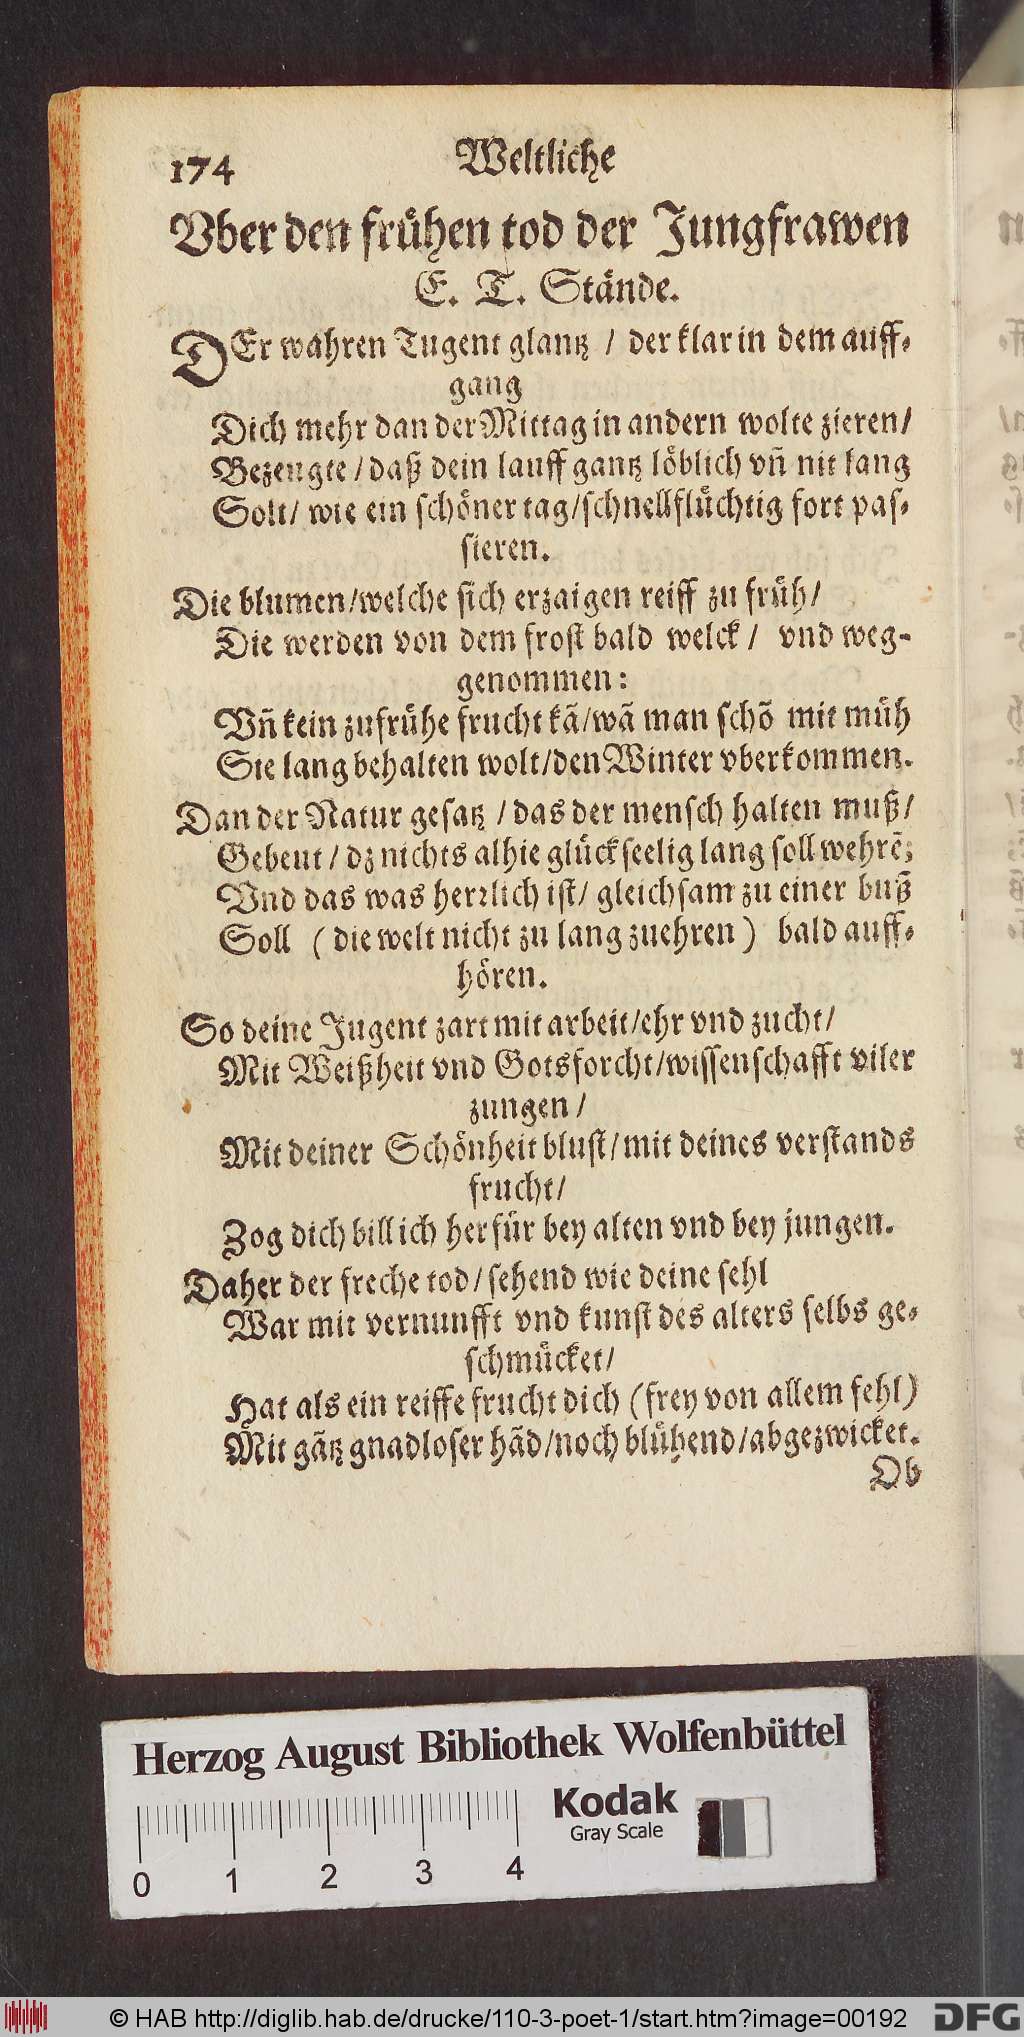 174 Weltliche
Vber den frühen tod der Jungfrawen
E. T. Stände.
DEr wahren Tugent glantz / der klar in dem auff-
gang
Dich mehr dan der Mittag in andern wolte zieren/
Bezeugte / daß dein lauff gantz löblich vñ nit lang
Solt/ wie ein schöner tag/schnellflüchtig fort pas-
sieren.
Die blumen/welche sich erzaigen reiff zu früh/
Die werden von dem frost bald welck / vnd weg-
genommen:
Vñ kein zufrühe frucht kã/wã man schõ mit müh
Sie lang behalten wolt/den Winter vberkommen.
Dan der Natur gesatz / das der mensch halten muß/
Gebeut / dz nichts alhie glückseelig lang soll wehrẽ;
Vnd das was herrlich ist/ gleichsam zu einer buß
Soll ( die welt nicht zu lang zuehren ) bald auff-
hören.
So deine Jugent zart mit arbeit/ehr vnd zucht/
Mit Weißheit vnd Gotsforcht/wissenschafft viler
zungen /
Mit deiner Schönheit blust/mit deines verstands
frucht/
Zog dich billich herfür bey alten vnd bey jungen.
Daher der freche tod/sehend wie deine sehl
War mit vernunfft vnd kunst des alters selbs ge-
schmücket/
Hat als ein reiffe frucht dich (frey von allem fehl)
Mit gãtz gnadloser hãd/noch blühend/abgezwicket.
Ob
Herzog August Bibliothek Wolfenbüttel
Kodak
Gray Scale
0 1 2 3 4
© HAB http://diglib.hab.de/drucke/110-3-poet-1/start.htm?image=00192
DFG